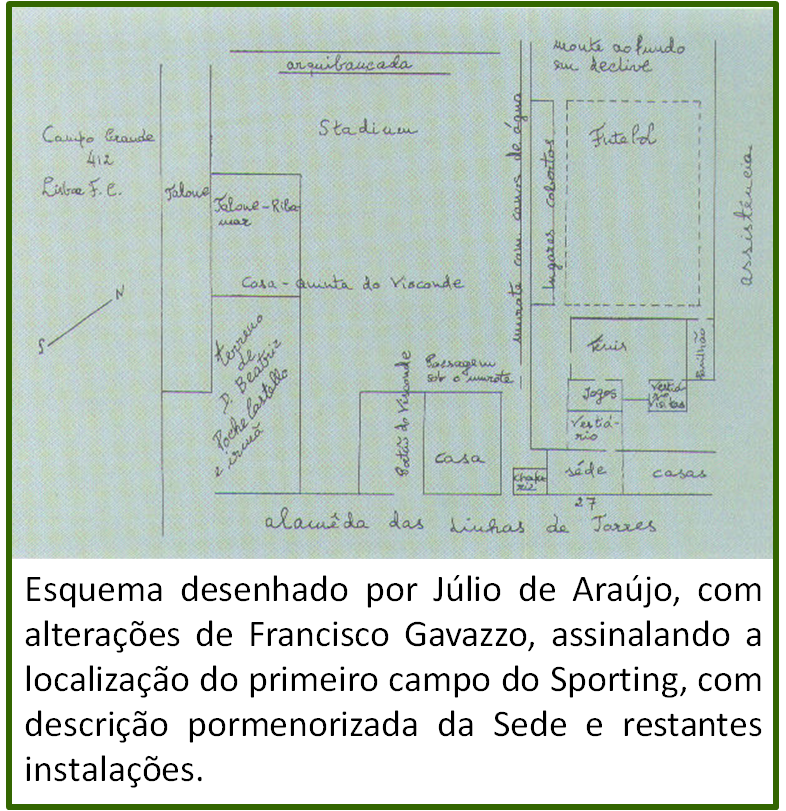 arquibancada
monte ao fundo
em declive
Stadium
Futebol
Campo Grande
412
Lisboa F.C.
Talone
Talone-Riba
mar
murete com canos de água
lugares cobertos
assistência
Casa - quinta do Visconde
N
S
terreno
de
D. Beatriz
Roche Castello
e irmã
Portão do Visconde
Passagem
sob o murete
Ténis
Pavilhão
Jogos
Vestiá-
rio
Visitas
Vestiá-
rio
casa
Chafa-
riz
séde
casas
27
alamêda das Linhas de Torres
Esquema desenhado por Júlio de Araújo, com
alterações de Francisco Gavazzo, assinalando a
localização do primeiro campo do Sporting, com
descrição pormenorizada da Sede e restantes
instalações.